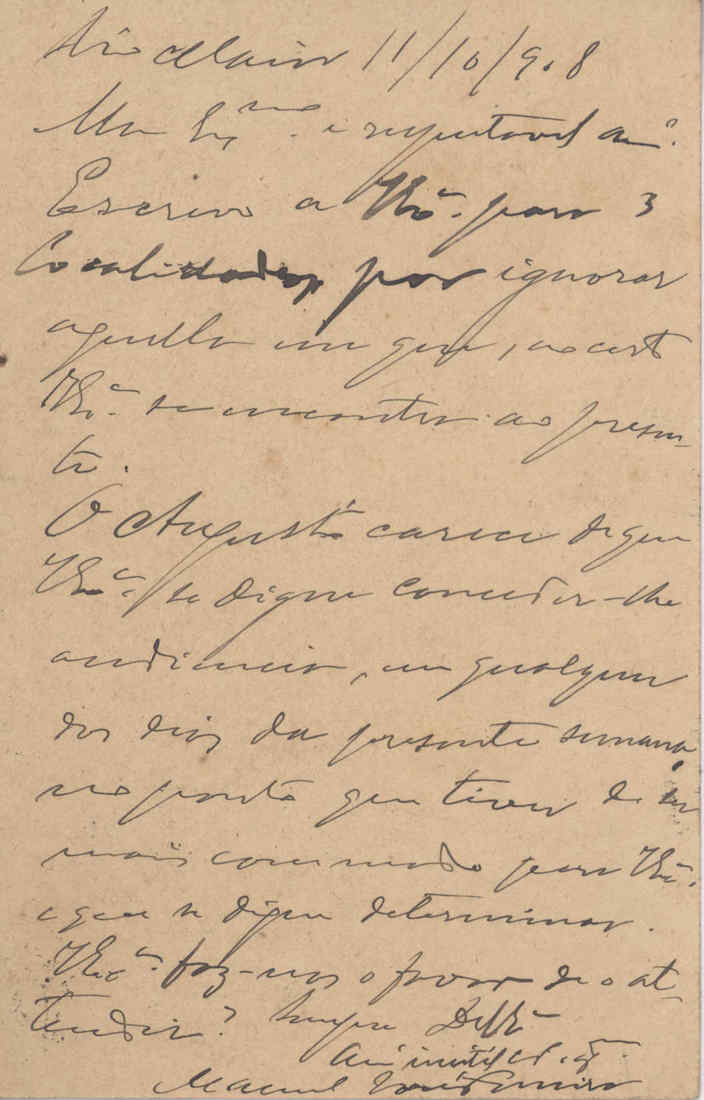 Rio Maior 11/10/908
Meu Exmo. e respeitavel am.º
Escrevo a V. Exª. para 3
localidades, por ignorar
aquella em que, ao certo
V. Exª. se encontra ao presen-
te.
O Augusto carece de que
V. Exª. se digne conceder-lhe
audiencia, em qualquer
dos dias da presente semana,
no ponto que tiver de ser
mais commodo para V. Exª.
e que se digne determinar.
V. Exª. faz-nos o favor de o at-
tender? Sempre
Am.º inutil
Manuel